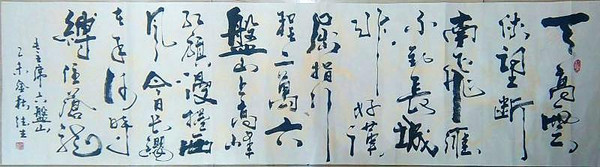 天高雲
淡望斷
南飛雁
不到長城
非好漢
屈指行
程二萬六
盤山上高峰
紅旗漫捲西
風今日長纓
在手何時
縛住蒼龍
毛主席六盤山
乙未